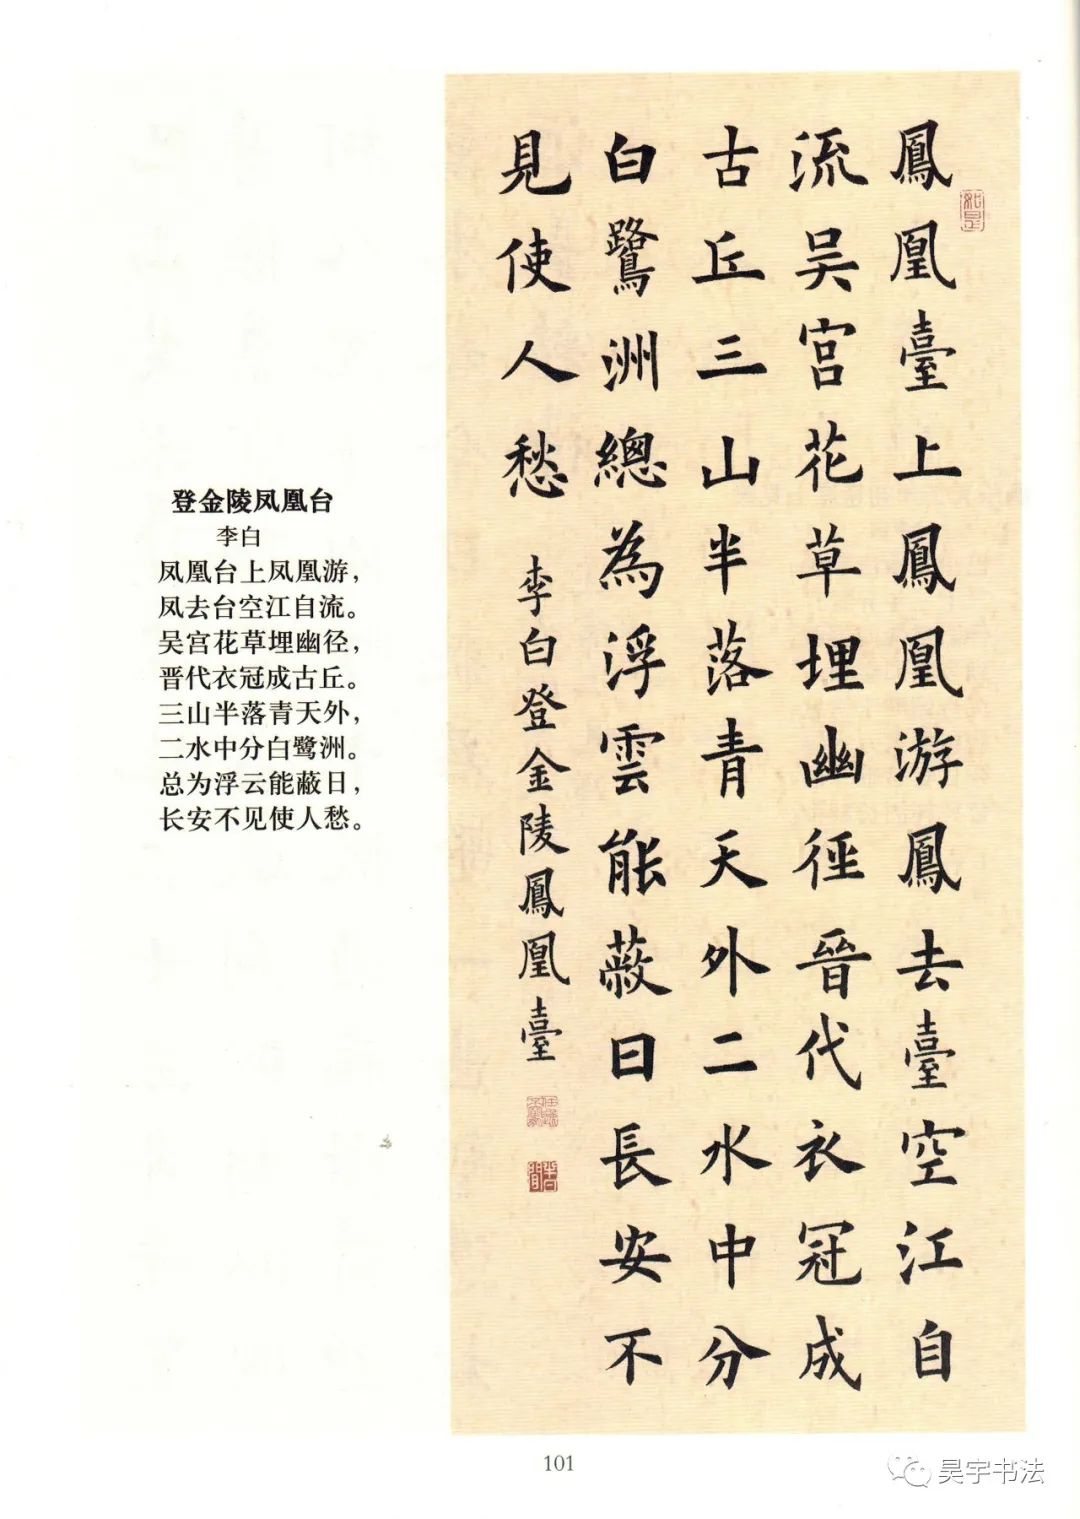 登金陵凤凰台
李白
凤凰台上凤凰游，
凤去台空江自流。
吴宫花草埋幽径，
晋代衣冠成古丘。
三山半落青天外，
二水中分白鹭洲。
总为浮云能蔽日，
长安不见使人愁。
鳳凰臺上鳳凰游鳳去臺空江自
流吴宫花草埋幽徑晉代衣冠成
古丘三山半落青天外二水中分
白鷺洲總為浮雲能蔽日長安不
見使人愁
李白登金陵鳳凰臺
如是
101
昊宇书法